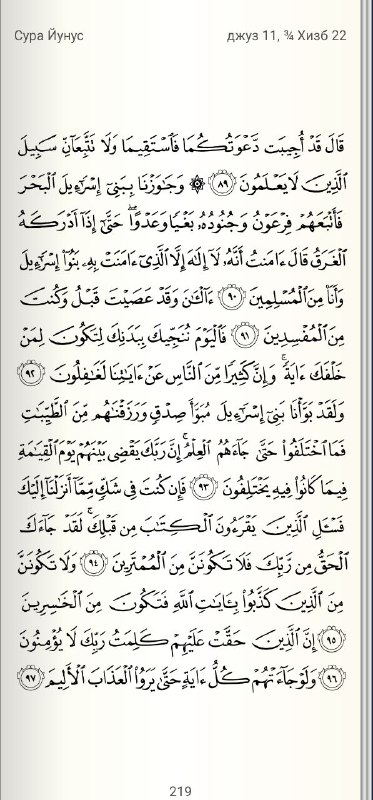 Сура Йунус
джуз 11, ¾ Хизб 22
قَالَ قَدْ أُجِيبَت دَّعْوَتُكُمَا فَٱسْتَقِيمَا وَلَا تَتَّبِعَآنِّ سَبِيلَ
ٱلَّذِينَ لَا يَعْلَمُونَ ٨٩ ۞ وَجَٰوَزْنَا بِبَنِىٓ إِسْرَٰٓءِيلَ ٱلْبَحْرَ
فَأَتْبَعَهُمْ فِرْعَوْنُ وَجُنُودُهُۥ بَغْيًا وَعَدْوًا ۖ حَتَّىٰٓ إِذَآ أَدْرَكَهُ
ٱلْغَرَقُ قَالَ ءَامَنتُ أَنَّهُۥ لَآ إِلَٰهَ إِلَّا ٱلَّذِىٓ ءَامَنَتْ بِهِۦ بَنُوٓا۟ إِسْرَٰٓءِيلَ
وَأَنَا۠ مِنَ ٱلْمُسْلِمِينَ ٩٠ ءَآلْـَٰٔنَ وَقَدْ عَصَيْتَ قَبْلُ وَكُنتَ
مِنَ ٱلْمُفْسِدِينَ ٩١ فَٱلْيَوْمَ نُنَجِّيكَ بِبَدَنِكَ لِتَكُونَ لِمَنْ
خَلْفَكَ ءَايَةً ۚ وَإِنَّ كَثِيرًا مِّنَ ٱلنَّاسِ عَنْ ءَايَٰتِنَا لَغَٰفِلُونَ ٩٢
وَلَقَدْ بَوَّأْنَا بَنِىٓ إِسْرَٰٓءِيلَ مُبَوَّأَ صِدْقٍ وَرَزَقْنَٰهُم مِّنَ ٱلطَّيِّبَٰتِ
فَمَا ٱخْتَلَفُوا۟ حَتَّىٰ جَآءَهُمُ ٱلْعِلْمُ ۚ إِنَّ رَبَّكَ يَقْضِى بَيْنَهُمْ يَوْمَ ٱلْقِيَٰمَةِ
فِيمَا كَانُوا۟ فِيهِ يَخْتَلِفُونَ ٩٣ فَإِن كُنتَ فِى شَكٍّ مِّمَّآ أَنزَلْنَآ إِلَيْكَ
فَسْـَٔلِ ٱلَّذِينَ يَقْرَءُونَ ٱلْكِتَٰبَ مِن قَبْلِكَ ۚ لَقَدْ جَآءَكَ
ٱلْحَقُّ مِن رَّبِّكَ فَلَا تَكُونَنَّ مِنَ ٱلْمُمْتَرِينَ ٩٤ وَلَا تَكُونَنَّ
مِنَ ٱلَّذِينَ كَذَّبُوا۟ بِـَٔايَٰتِ ٱللَّهِ فَتَكُونَ مِنَ ٱلْخَٰسِرِينَ
٩٥ إِنَّ ٱلَّذِينَ حَقَّتْ عَلَيْهِمْ كَلِمَتُ رَبِّكَ لَا يُؤْمِنُونَ
٩٦ وَلَوْ جَآءَتْهُمْ كُلُّ ءَايَةٍ حَتَّىٰ يَرَوُا۟ ٱلْعَذَابَ ٱلْأَلِيمَ ٩٧
219